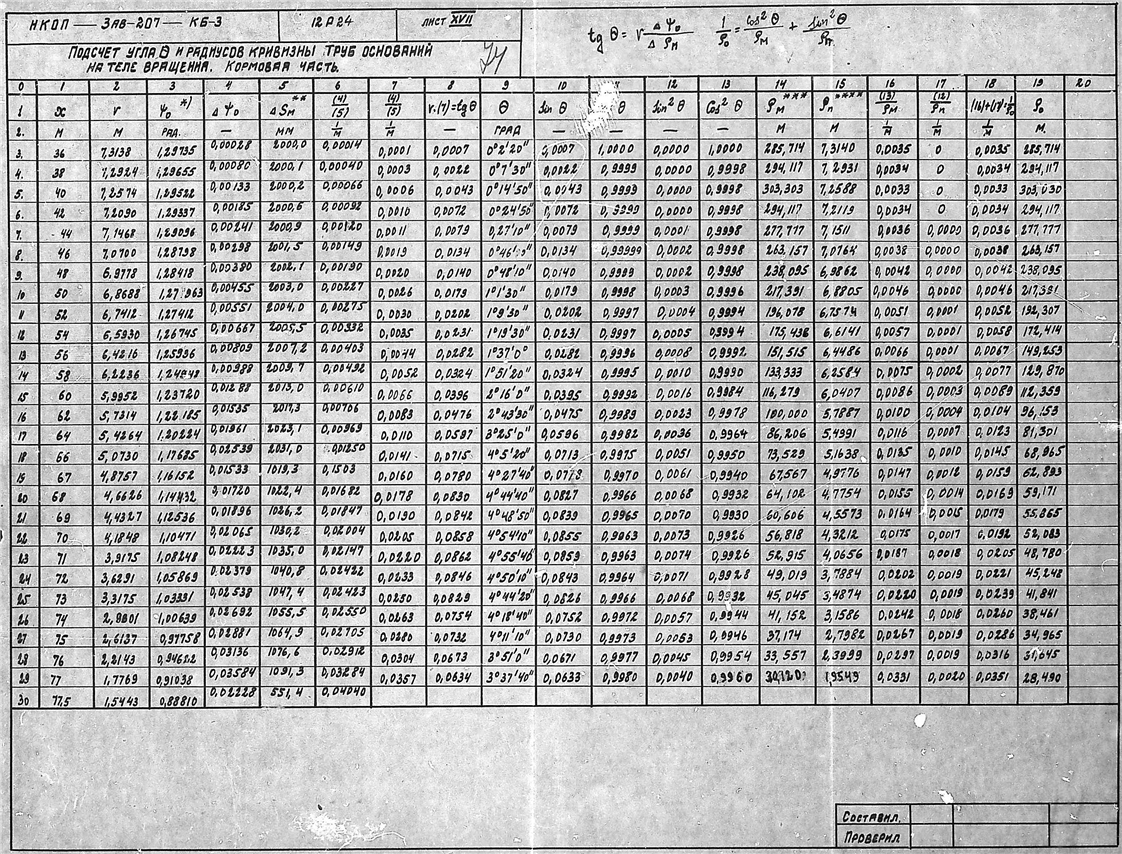 НКОП — ЗАВ-207 — КБ-3 12Р24 ЛИСТ XVII
ПОДСЧЕТ УГЛА Θ И РАДИУСОВ КРИВИЗНЫ ТРУБ ОСНОВАНИЙ
НА ТЕЛЕ ВРАЩЕНИЯ. КОРМОВАЯ ЧАСТЬ.
74
tg Θ = r Δψ₀/Δρₙ 1/ρ₀ = Cos²Θ/ρм + Sin²Θ/ρп
0 1 2 3 4 5 6 7 8 9 10 11 12 13 14 15 16 17 18 19 20
1. x r ψ₀*) Δψ₀ ΔSм** (4)/(5) (4)/(5) r.(7)=tgΘ Θ Sin Θ Θ Sin²Θ Cos²Θ ρм*** ρп**** (13)/ρм (12)/ρп (16)+(17)=1/ρ₀ ρ₀
2. М М РАД. — ММ 1/М 1/М — ГРАД — — — — М М 1/М 1/М 1/М М.
3. 36 7,3138 1,29735 0,00028 2000,0 0,00014 0,0001 0,0007 0°2'20" 0,0007 1,0000 0,0000 1,0000 285,714 7,3140 0,0035 0 0,0035 285,714
4. 38 7,2924 1,29655 0,00080 2000,1 0,00040 0,0003 0,0022 0°7'30" 0,0022 0,9999 0,0000 0,9998 294,117 7,2931 0,0034 0 0,0034 294,117
5. 40 7,2574 1,29522 0,00133 2000,2 0,00066 0,0006 0,0043 0°14'50" 0,0043 0,9999 0,0000 0,9998 303,303 7,2588 0,0033 0 0,0033 303,030
6. 42 7,2090 1,29337 0,00185 2000,6 0,00092 0,0010 0,0072 0°24'50" 0,0072 0,9999 0,0000 0,9998 294,117 7,2119 0,0034 0 0,0034 294,117
7. 44 7,1468 1,29096 0,00241 2000,9 0,00120 0,0011 0,0079 0,27'10" 0,0079 0,9999 0,0001 0,9998 277,777 7,1511 0,0036 0,0000 0,0036 277,777
8. 46 7,0700 1,28798 0,00298 2001,5 0,00149 0,0019 0,0134 0,0134 0,99999 0,0002 0,9998 263,157 7,0764 0,0038 0,0000 0,0038 263,157
9. 48 6,9778 1,28418 0,00380 2002,1 0,00190 0,0020 0,0140 0°48'10" 0,0140 0,9999 0,0002 0,9998 238,095 6,9862 0,0042 0,0000 0,0042 238,095
10 50 6,8688 1,27963 0,00455 2003,0 0,00227 0,0026 0,0179 1°1'30" 0,0179 0,9998 0,0003 0,9996 217,391 6,8805 0,0046 0,0000 0,0046 217,391
11 52 6,7412 1,27412 0,00551 2004,0 0,00275 0,0030 0,0202 1°9'30" 0,0202 0,9997 0,0004 0,9994 196,078 6,7574 0,0051 0,0001 0,0052 192,307
12 54 6,5930 1,26745 0,00667 2005,5 0,00332 0,0035 0,0231 1°19'30" 0,0231 0,9997 0,0005 0,9994 175,438 6,6141 0,0057 0,0001 0,0058 172,414
13 56 6,4216 1,25936 0,00809 2007,2 0,00403 0,0044 0,0282 1°37'0" 0,0282 0,9996 0,0008 0,9992 151,515 6,4486 0,0066 0,0001 0,0067 149,253
14 58 6,2236 1,24948 0,00988 2009,7 0,00492 0,0052 0,0324 1°51'20" 0,0324 0,9995 0,0010 0,9990 133,333 6,2584 0,0075 0,0002 0,0077 129,870
15 60 5,9952 1,23720 0,01288 2013,0 0,00610 0,0066 0,0396 2°16'0" 0,0395 0,9992 0,0016 0,9984 116,279 6,0407 0,0086 0,0003 0,0089 112,359
16 62 5,7314 1,22185 0,01535 2017,3 0,00706 0,0083 0,0476 2°43'30" 0,0475 0,9989 0,0023 0,9978 100,000 5,7887 0,0100 0,0004 0,0104 96,153
17 64 5,4264 1,20224 0,01961 2023,1 0,00969 0,0110 0,0597 3°25'0" 0,0596 0,9982 0,0036 0,9964 86,206 5,4991 0,0116 0,0007 0,0123 81,301
18 66 5,0730 1,17685 0,02539 2031,0 0,01250 0,0141 0,0715 4°5'20" 0,0713 0,9975 0,0051 0,9950 73,529 5,1638 0,0135 0,0010 0,0145 68,965
19 67 4,8757 1,16152 0,01533 1019,3 0,1503 0,0160 0,0780 4°27'40" 0,0778 0,9970 0,0061 0,9940 67,567 4,9776 0,0147 0,0012 0,0159 62,893
20 68 4,6626 1,14432 0,01720 1022,4 0,01682 0,0178 0,0830 4°44'40" 0,0827 0,9966 0,0068 0,9932 64,102 4,7754 0,0155 0,0014 0,0169 59,171
21 69 4,4327 1,12536 0,01896 1026,2 0,01847 0,0190 0,0842 4°48'50" 0,0839 0,9965 0,0070 0,9930 60,606 4,5573 0,0164 0,0015 0,0179 55,865
22 70 4,1848 1,10471 0,02065 1030,2 0,02004 0,0205 0,0858 4°54'10" 0,0855 0,9063 0,0073 0,9926 56,818 4,3212 0,0175 0,0017 0,0192 52,083
23 71 3,9175 1,08248 0,02223 1035,0 0,02147 0,0220 0,0862 4°55'40" 0,0859 0,9963 0,0074 0,9926 52,915 4,0656 0,0187 0,0018 0,0205 48,780
24 72 3,6291 1,05869 0,02379 1040,8 0,02422 0,0233 0,0846 4°50'10" 0,0843 0,9964 0,0071 0,9928 49,019 3,7884 0,0202 0,0019 0,0221 45,248
25 73 3,3175 1,03331 0,02538 1047,4 0,02423 0,0250 0,0829 4°44'20" 0,0826 0,9966 0,0068 0,9932 45,045 3,4874 0,0220 0,0019 0,0239 41,841
26 74 2,9801 1,00639 0,02692 1055,5 0,02550 0,0263 0,0754 4°18'40" 0,0752 0,9972 0,0057 0,9944 41,152 3,1586 0,0242 0,0018 0,0260 38,461
27 75 2,6137 0,97758 0,02881 1064,9 0,02705 0,0280 0,0732 4°11'10" 0,0730 0,9973 0,0053 0,0946 37,174 2,7982 0,0267 0,0019 0,0286 34,965
28 76 2,2143 0,94622 0,03136 1076,6 0,02912 0,0304 0,0673 3°51'0" 0,0671 0,9977 0,0045 0,9954 33,557 2,3999 0,0297 0,0019 0,0316 31,645
29 77 1,7769 0,91038 0,03584 1091,3 0,03284 0,0357 0,0634 3°37'40" 0,0633 0,9980 0,0040 0,9960 30,120 1,9549 0,0331 0,0020 0,0351 28,490
30 77,5 1,5443 0,88810 0,02228 551,4 0,04040
СОСТАВИЛ.
ПРОВЕРИЛ